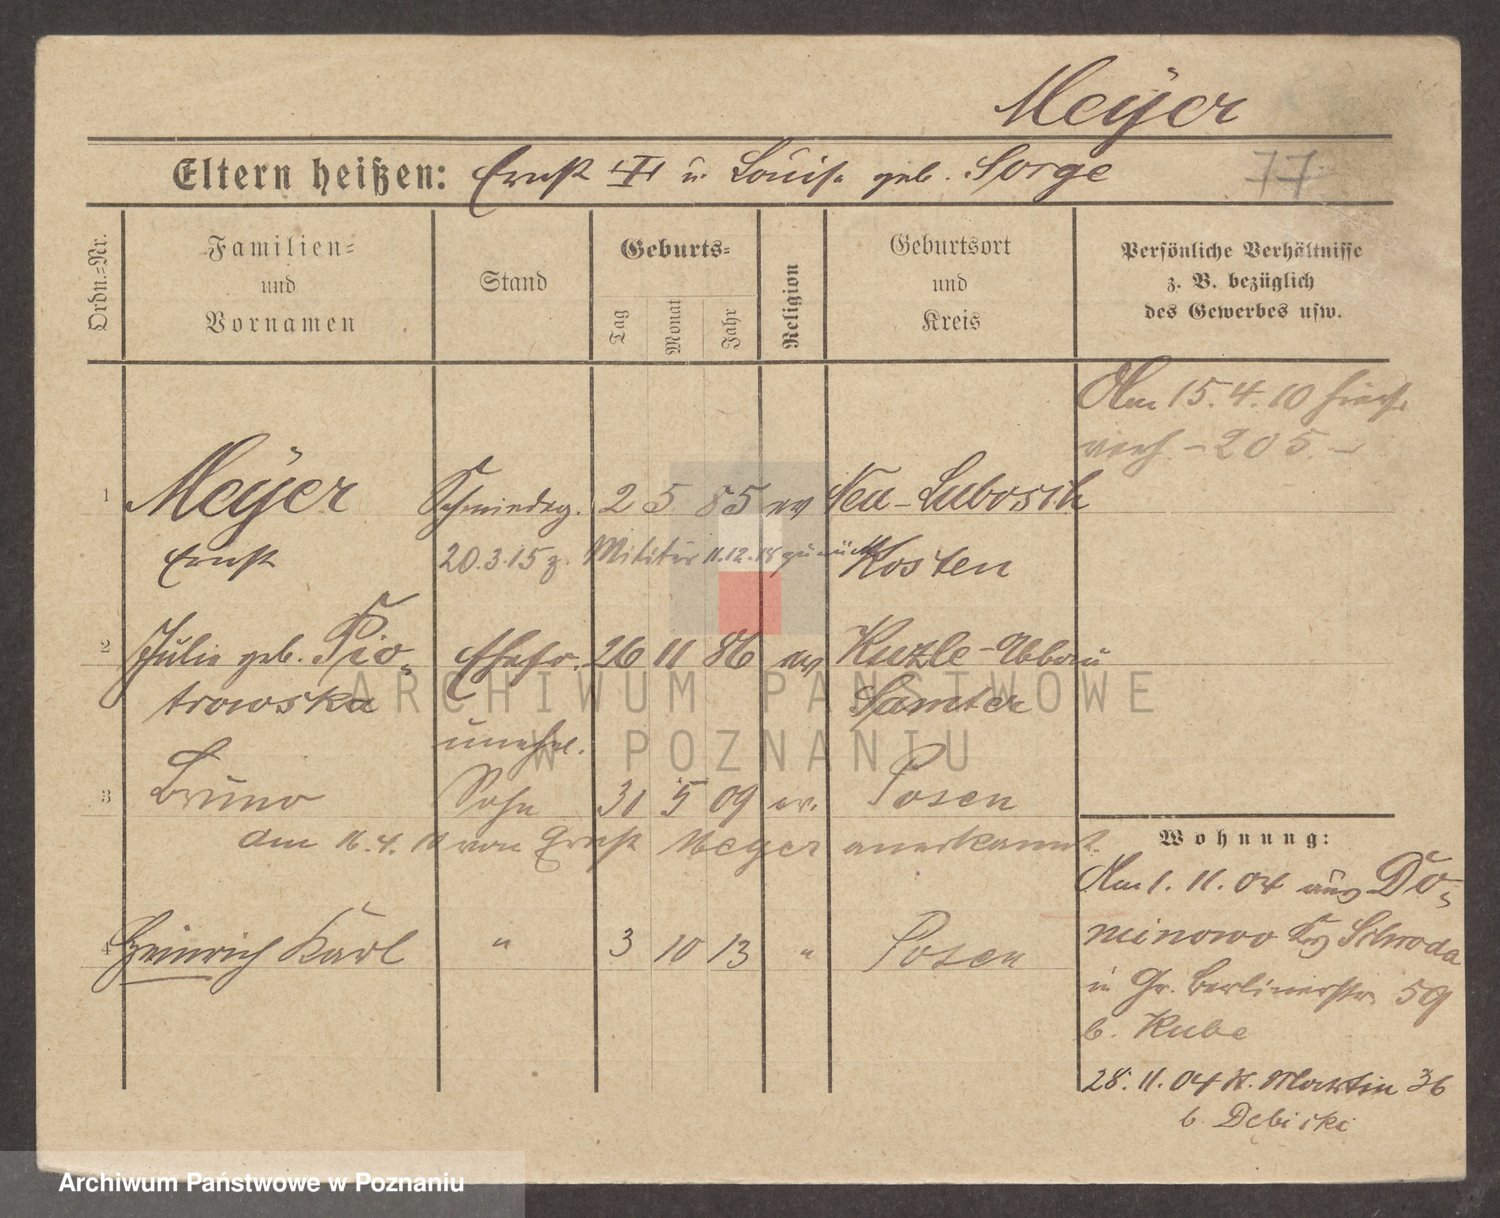 Meÿer
Eltern heißen: Ernst III u. Louise geb. Sorge
77
Ordn.=Nr.
Familien=
und
Vornamen
Stand
Geburts=
Tag
Monat
Jahr
Religion
Geburtsort
und
Kreis
Persönliche Verhältnisse
z. B. bezüglich
des Gewerbes usw.
Am 15.4.10 hier
verh. - 205. -
1 Meÿer Schmiedeg. 2 5 85 ev Neu-Lubosch
Ernst 20.3.15 z. Militär 11.12.18 zurück Kosten
2 Julie geb. Pio- Ehefr. 26 11 86 ev Kuzle-Abbau
trowska Samter
unehel.
3 Bruno Sohn 31 5 09 ev. Posen
am 16.4.10 von Ernst Meyer anerkannt.
4 Heinrich Karl " 3 10 13 " Posen
Wohnung:
Am 1. 11. 04 aus Do-
minowo Krs Schroda
in Gr. Berlinerstr. 59
b. Kube
28. 11. 04 St. Martin 36
b. Dębicki
ARCHIWUM PAŃSTWOWE
W POZNANIU
Archiwum Państwowe w Poznaniu